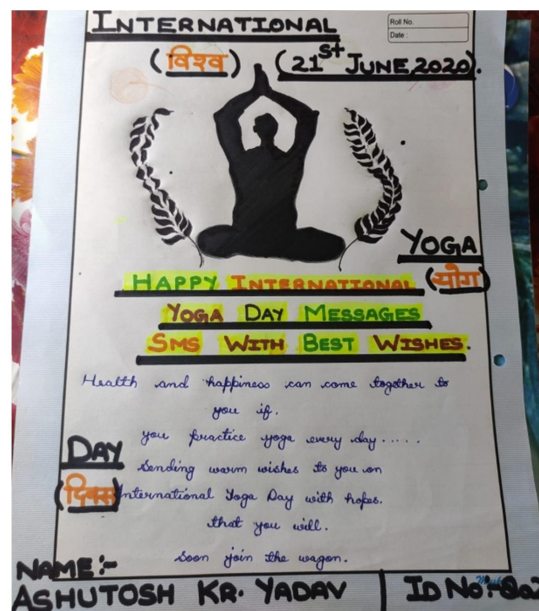 INTERNATIONAL
Roll No.
Date :
(विश्व) (21st JUNE, 2020).
YOGA
(योग)
HAPPY INTERNATIONAL
YOGA DAY MESSAGES
SMS WITH BEST WISHES.
Health and happiness can come together to
you if.
you practice yoga every day.....
DAY
Sending warm wishes to you on
(दिवस)
International Yoga Day with hopes.
that you will.
Soon join the wagon.
NAME:-
ASHUTOSH KR. YADAV
ID NO:-